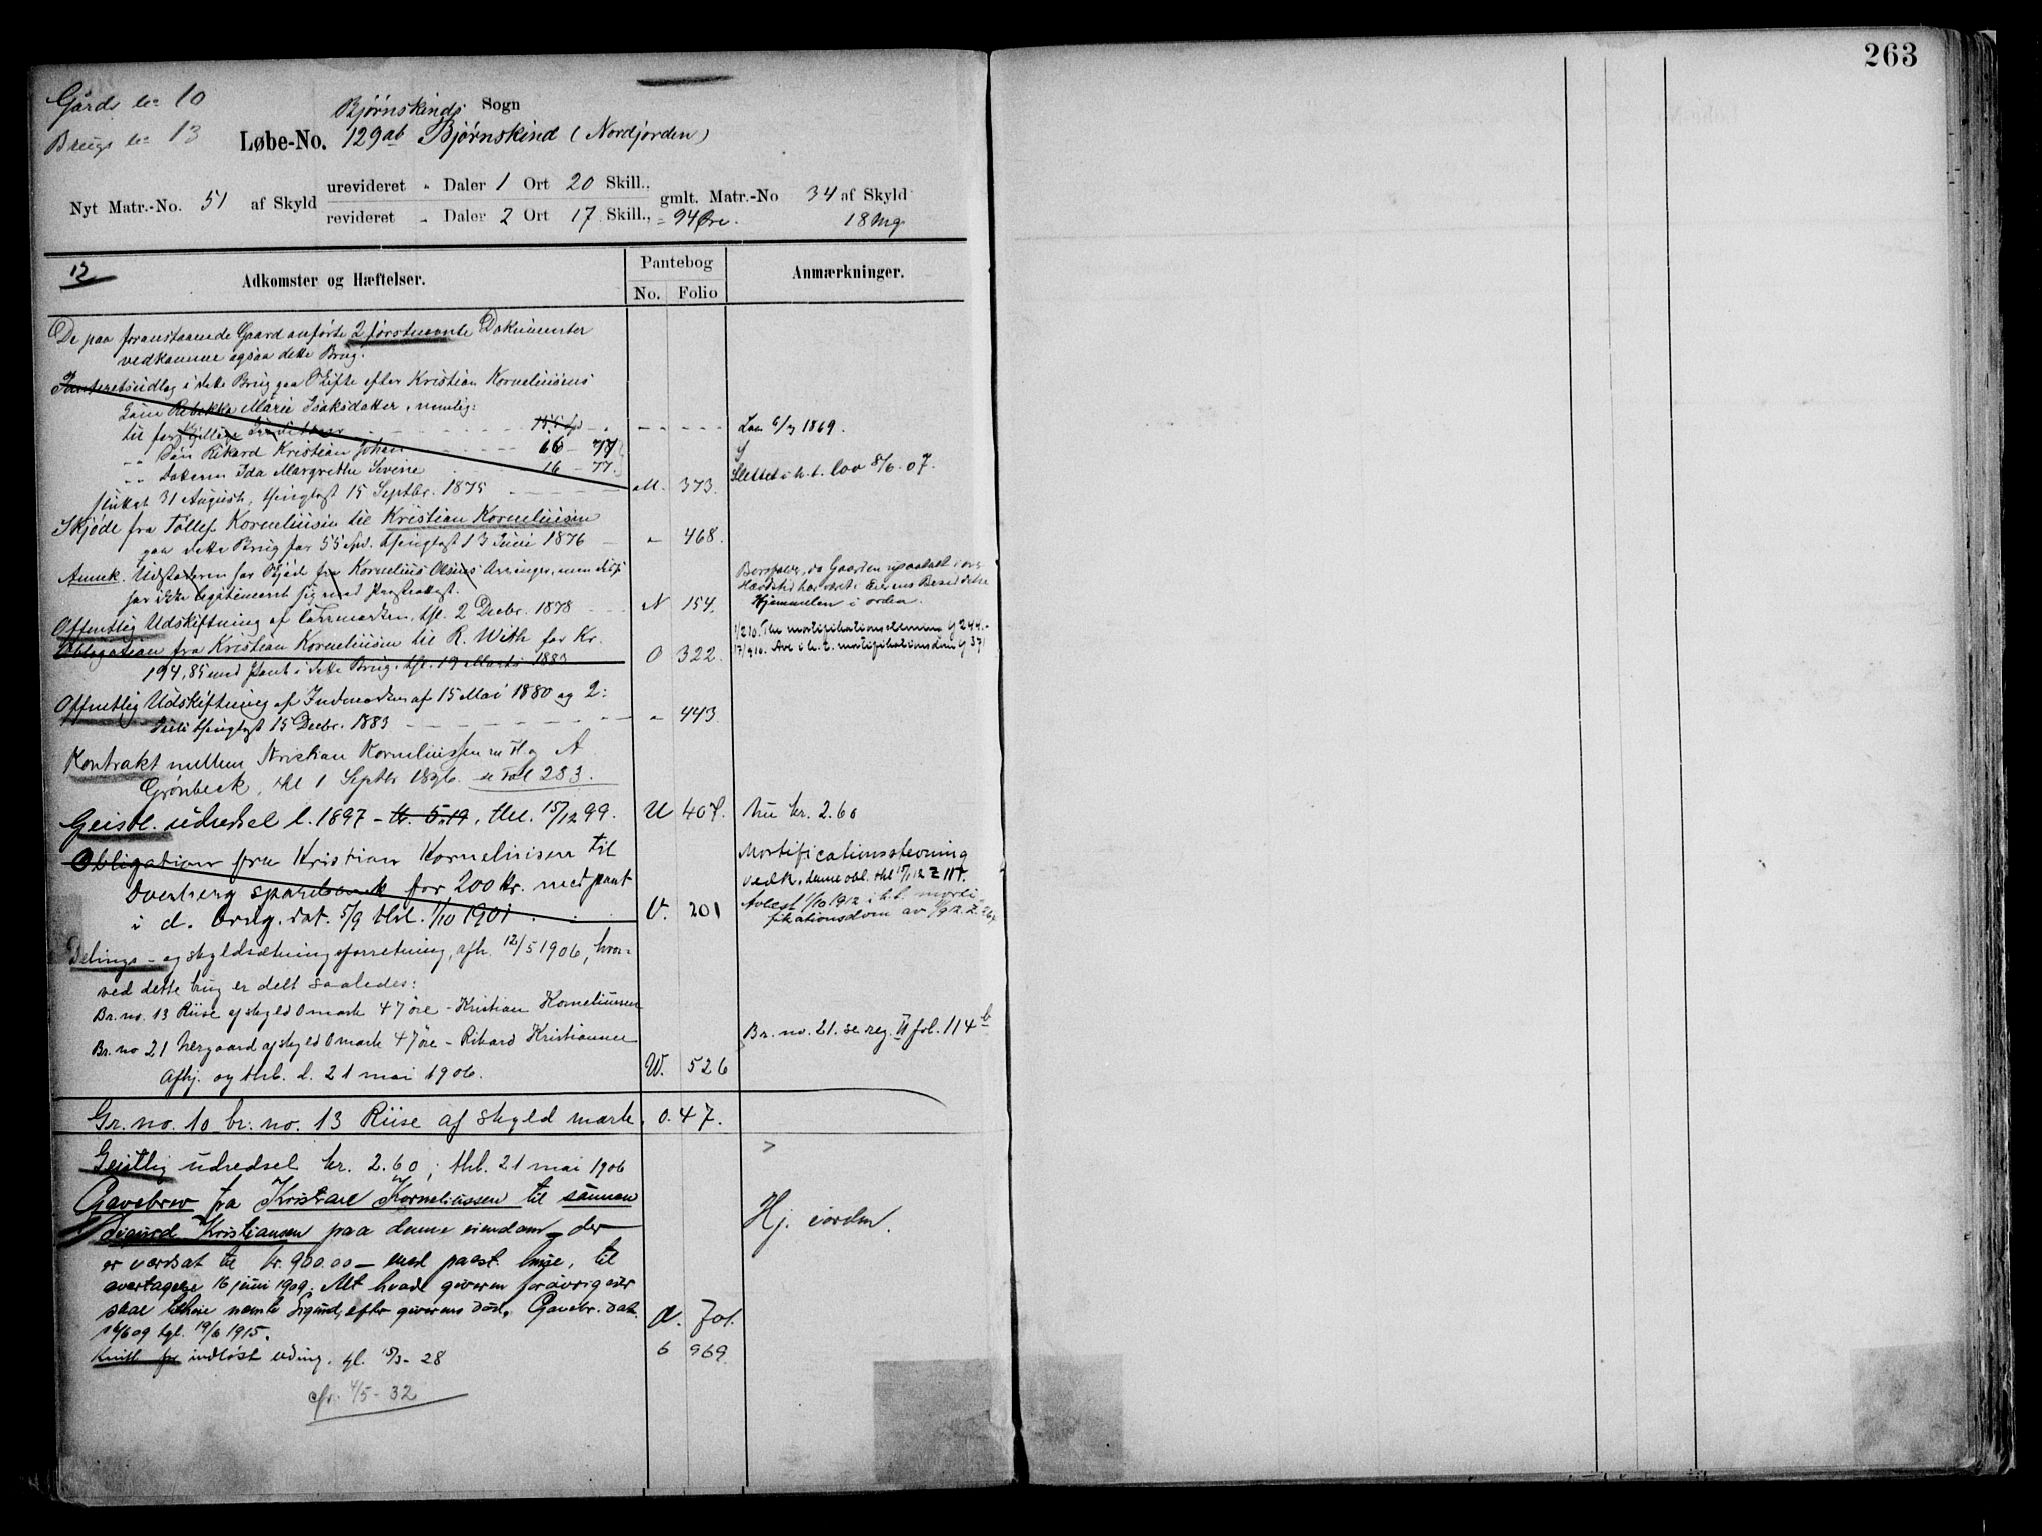 263
Gårds No 10
Brugs No 13
Bjørnskinds Sogn
Løbe-No. 129ab Bjørnskind (Nordjorden)
Nyt Matr.-No. 51 af Skyld
urevideret " Daler 1 Ort 20 Skill.,
revideret " Daler 2 Ort 17 Skill., = 94 Øre.
gmlt. Matr.-No 34 af Skyld
18 Mg
12
Adkomster og Hæftelser.
Pantebog
No. Folio
Anmærkninger.
De paa foranstaaende Gaard anførte 2 førstnævnte Dokumenter
vedkomme ogsaa dette Brug.
Panteretsudlæg i dette Brug paa Skifte efter Kristian Korneliusens
Rebekka Marie Isaksdatter, nemlig:
til
" Søn Rikard Kristian Johan 16 - 77
" Datteren Ida Margrethe Severine 16 - 77.
sluttet 31 August, thinglyst 15 Septbr. 1875 M. 373.
Lov 6/3 1869.
Slettet i h. t. lov 8/6. 07.
Skjøde fra Tollef Korneliusen til Kristian Korneliusen
paa dette Brug for 55 Spd. thinglyst 13 Juni 1876 " 468.
Anmk. Udstederen har Skjød fra Kornelius Olsens Arvinger, men disse
har ikke legitimeret sig med Skifteattest.
Bortfalder, da Gaarden upaatalt i over
Hævdstid har været i Eierens Besiddelse
Hjemmelen i orden.
Offentlig Udskiftning af tfl. 2 Decbr. 1878 N 154.
Obligation fra Kristian Korneliusen til R. With for Kr.
194,85 med Pant i dette Brug, tfl. 19 Marts 1883 O 322.
1/2 10. Thl mortifikationsstevning Y 244.-
17/9 10. Avl i h. t. mortifikationsdom Y 371
Offentlig Udskiftning af Indmarken af 15 Mai 1880 og 2:
Juli thinglyst 15 Decbr. 1883 " 443.
Kontrakt mellem Kristian Korneliussen m fl og A
Grønbeck, thl 1 Septbr 1896. se Fol 283.
Geistl. udredsel l. 1897 - kr. 5.19, thl. 15/12 99. U 407.
Nu kr. 2.60
Obligation fra Kristian Korneliusen til
Dverberg sparebank for 200 Kr. med pant
i d. brug. dat. 5/9 thl. 1/10 1901. V. 201
Mortificationsstevning
vedk. denne obl. thl
Avlest 1/10 1912 i h.t. morti-
fikationsdom av
Delings- og skyldsætningsforretning, afh. 12/5 1906, hvor-
ved dette brug er delt saaledes:
Br. no. 13 Riise af skyld 0 mark 47 øre - Kristian Korneliussen
Br. no 21 Nergaard af skyld 0 mark 47 øre - Rikard Kristiansen
Afhj. og thl. d. 21 mai 1906. W. 526
Br. no. 21. se reg. fol. 114 b
Gr. no. 10 br. no. 13 Riise af skyld mark. 0.47.
Geistlig udredsel kr. 2.60, thl. 21 mai 1906
Gavebrev fra Kristian Korneliussen til sønnen
Sigurd Kristiansen paa denne eiendom der
er værdsat til kr. 900.00 - med paast. huse, til
overtagelse 16 juni 1909. Alt hvad giveren forøvrig eier
skal tilhøre nævnte Sigurd, efter giverens død. Gavebr. dat.
16/6 09 tgl. 19/6 1915. Æ. 701.
Hj. iorden.
indløst eding. gl. 15/3 - 28 6 969.
cfr. 4/5 - 32